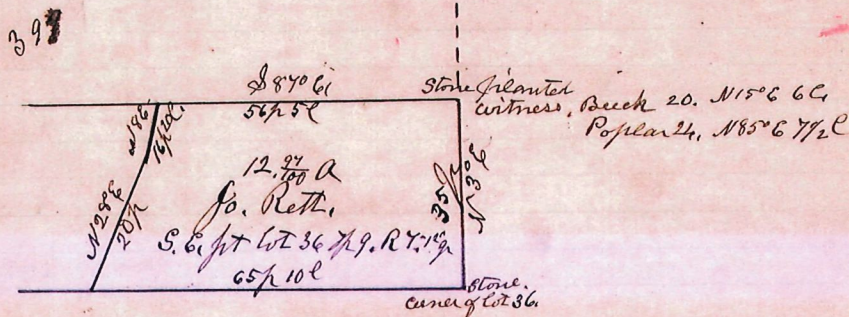 397
S 87° E,
56p 5l
Stone planted
witness, Beech 20. N15°E 6l,
Poplar 24, N85°E 7½l
N18E,
16p 2l,
N28E
20p
12.97/100 A
Jo. Rett.
S.E. pt lot 36
65p 10l
35p
N3°E
Stone.
corner of lot 36.